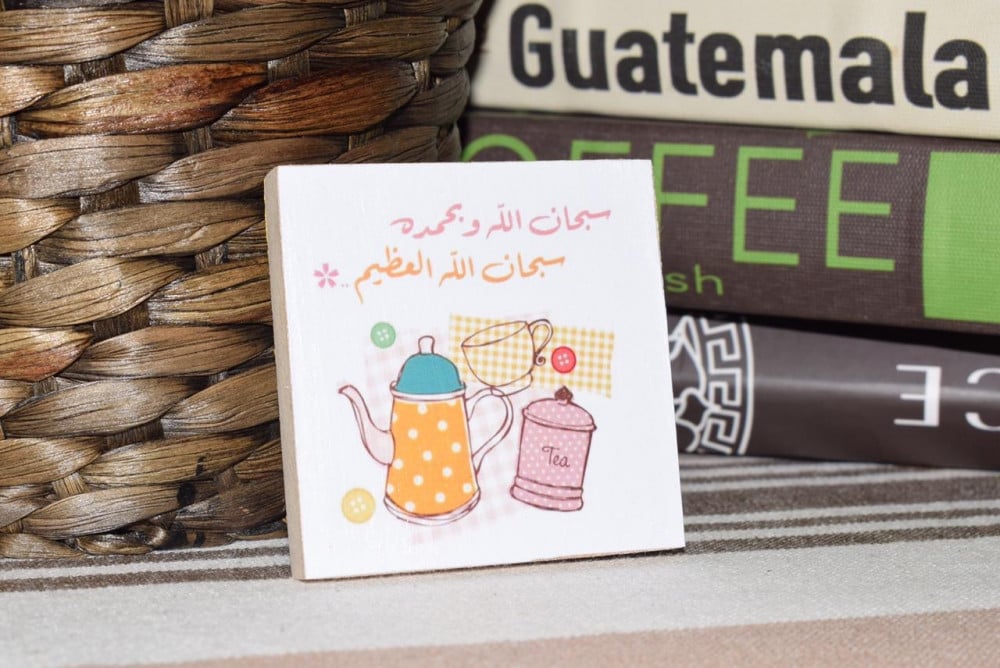 Guatemala
OFFEE
sh
سبحان الله وبحمده
سبحان الله العظيم ..
Tea
CE